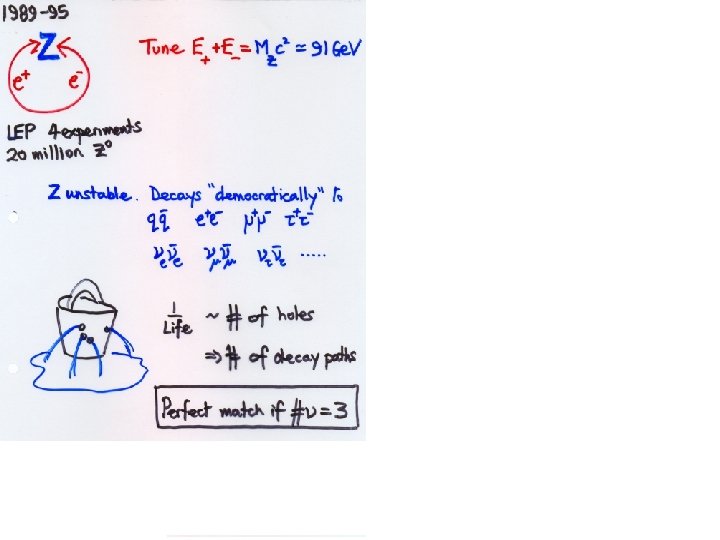 1989-95
Z
e⁺ e⁻
Tune E₊+E₋=M_Zc² ≈ 91 GeV
LEP 4 experiments
20 million Z⁰
Z unstable. Decays "democratically" to
qq̄ e⁺e⁻ μ⁺μ⁻ τ⁺τ⁻
ν_eν̄_e ν_μν̄_μ ν_τν̄_τ .....
1/Life ~ # of holes
⇒ # of decay paths
Perfect match if #ν=3